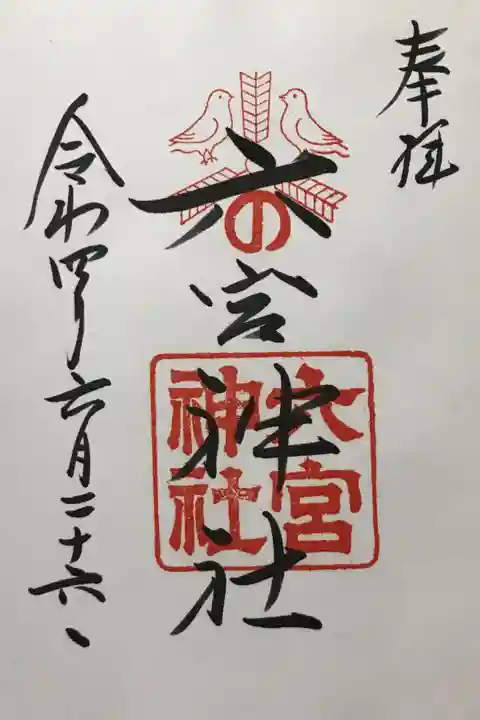 奉拝
六宮神社
の
六宮
神社
令和四年六月二十六日